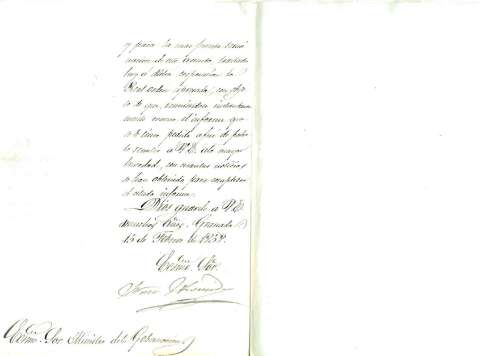 y para la mas pronta termi
nacion de este asunto traslado
hoy á dicha corporacion la
Real orden espresada, con obje
to de que, remitiéndose
el informe que
se le tiene pedido á fin de poder
lo remitir á V.E. á la mayor
brevedad, con cuantas noticias
se han obtenido para completar
el citado informe.
Dios guarde á V.E.
muchos años. Granada
15 de Febrero de
Exmo. Sor.
Exmo. Sor. Ministro de la Gobernacion